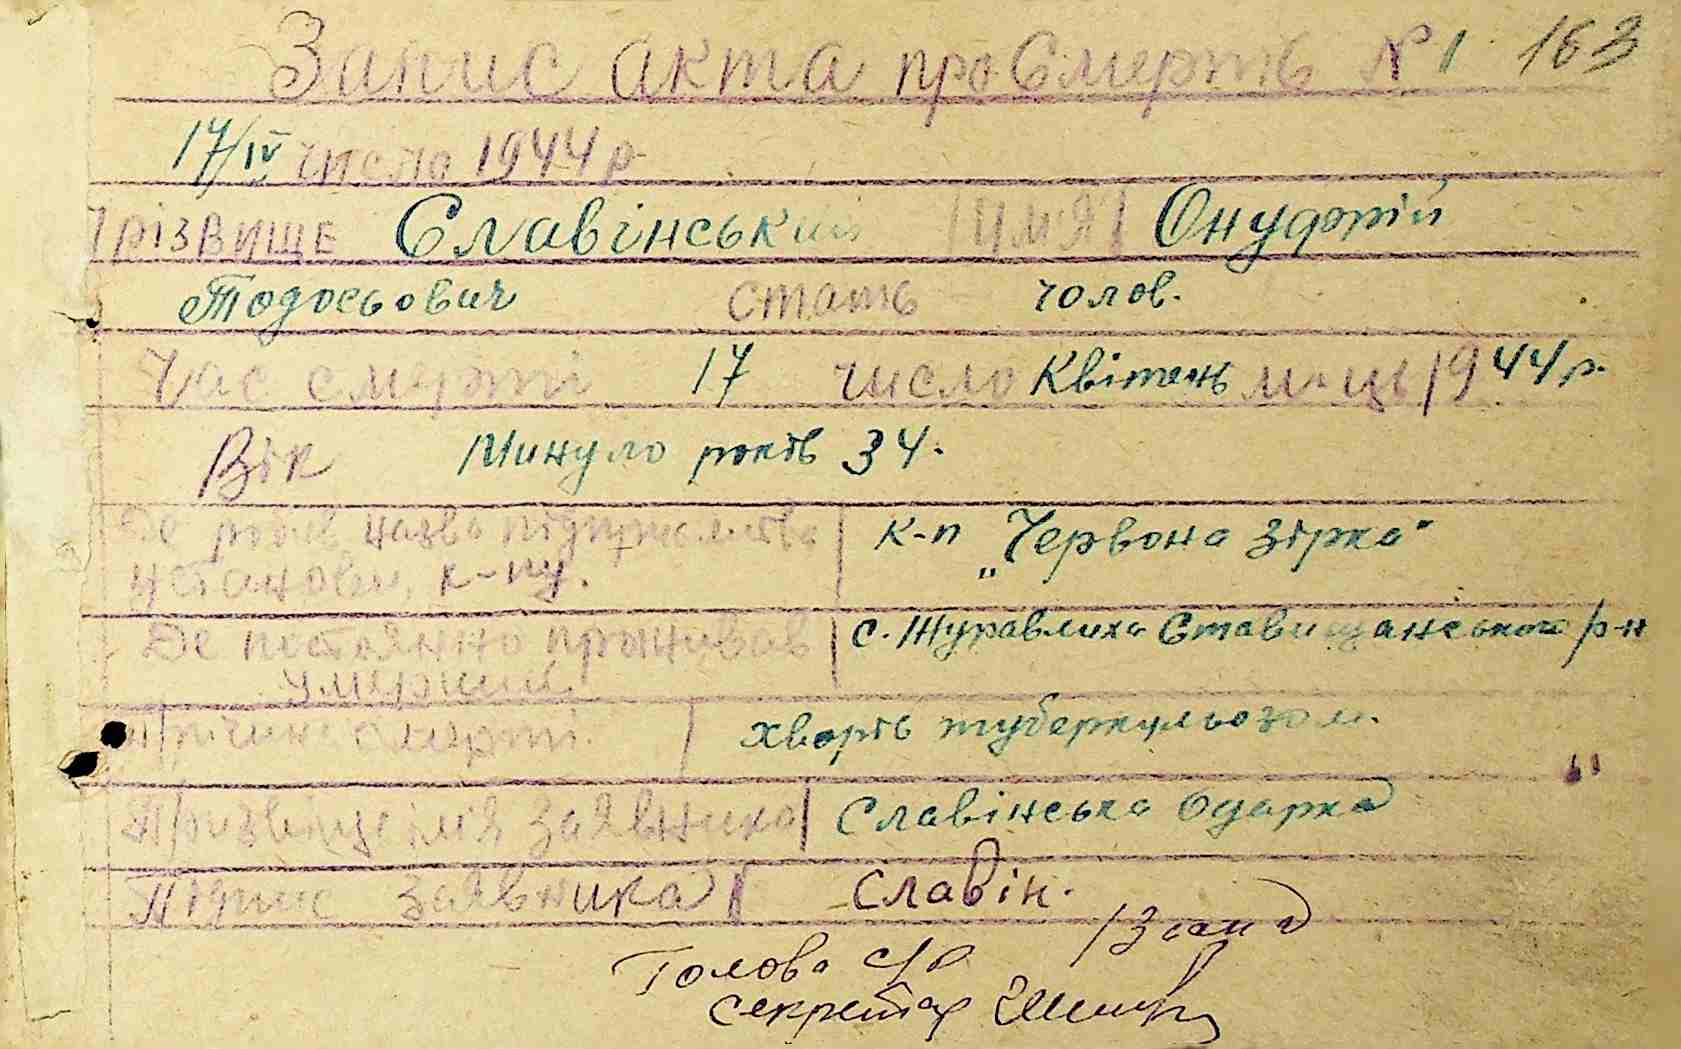 Запис акта про Смерть № 1 163
17/IV числа 1944 р
Прізвище Славінський Им'я Онуфрій
Тодосьович стать чолов.
Час смерти 17 число Квітень м-ць 1944 р.
Вік Минуло років 34.
Де робив назва підприємства к-п „Червона зірка"
установи, к-пу.
Де постоянно проживав с. Журавлиха Ставищанського р-н
умерший
Прічина смерті. хворів туберкульозом.
Призвіще імя заявника Славінська Одарка
Підпис заявника Славін.
Голова с/р
секретар